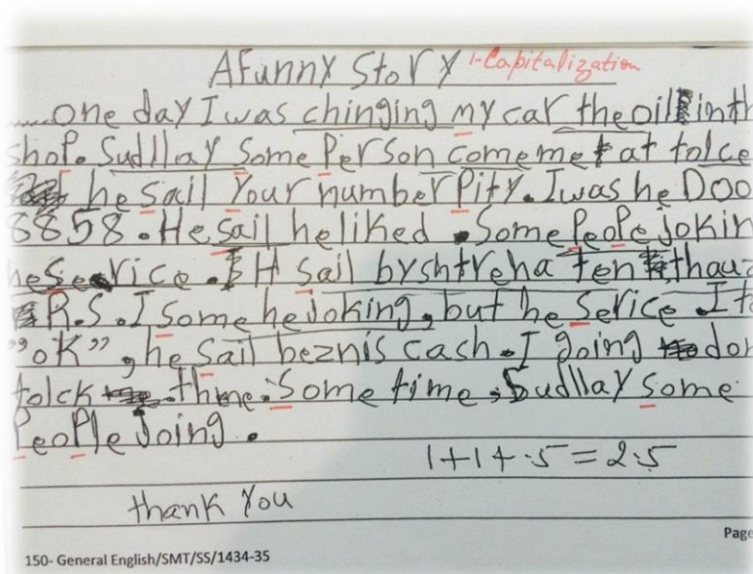 A Funny Story 1-Capitalization
one day I was chinging my car the oil in th
shop. Sudllay Some Person come me at tolce
he sail Your number Pity. I was he Doo
8858. He sail he liked. Some PeoPle jokin
heSerice. H Sail byshtreha ten thauz
R.S. I Some he Joking, but he Serice. I to
"oK", he Sail beznis cash. I going don
tolck thme. Some time, Sudllay Some
PeoPle Joing.
1+1+.5=2.5
thank You
Page
150- General English/SMT/SS/1434-35